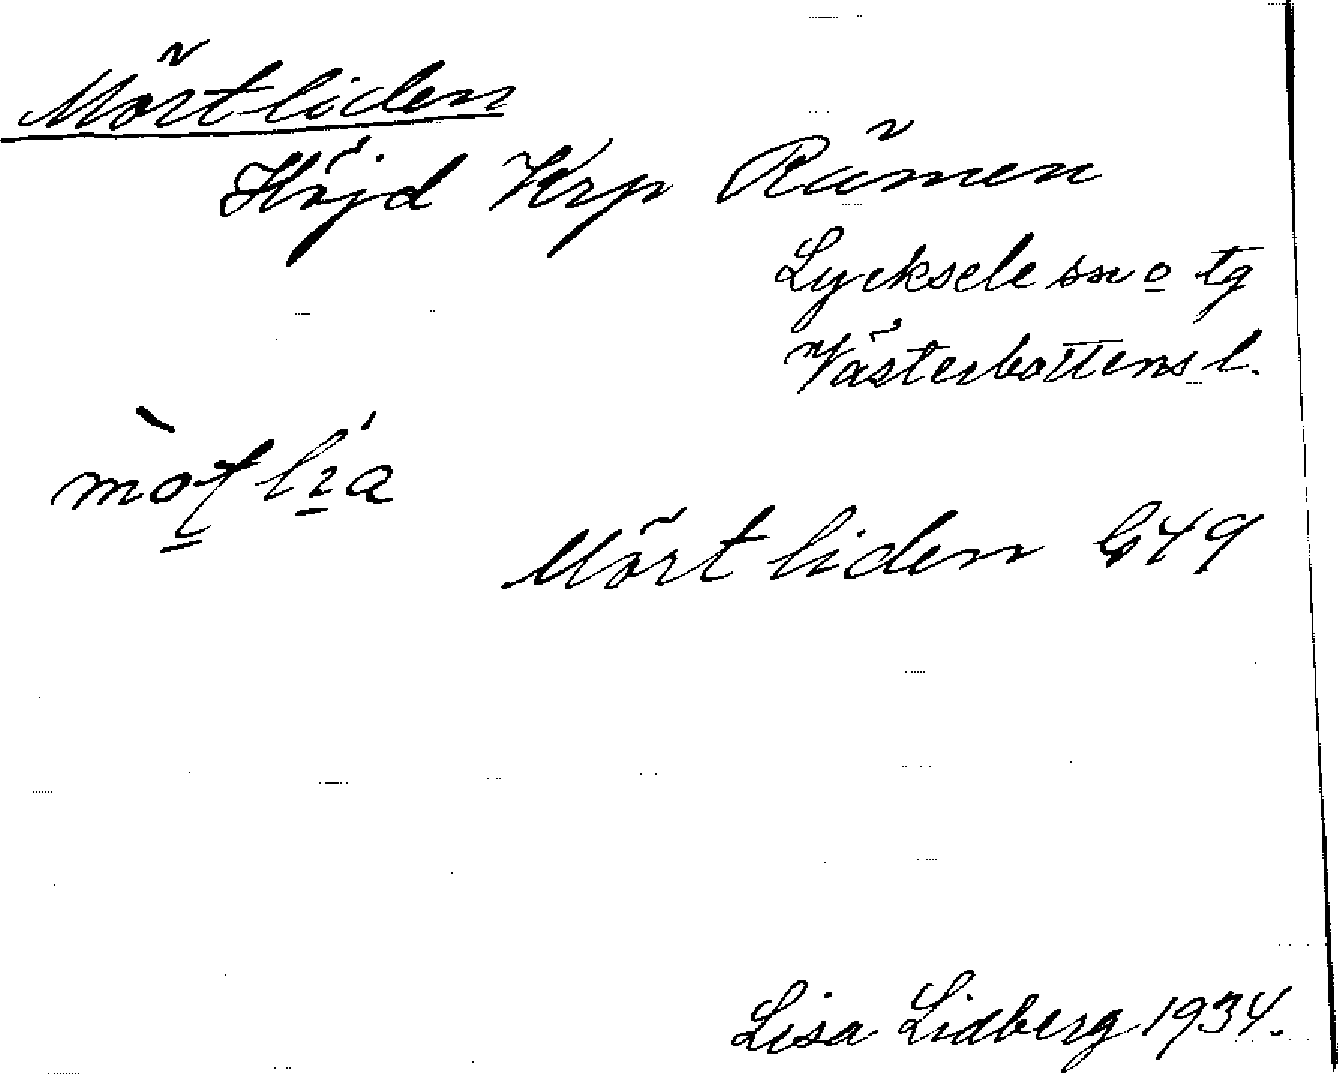 Mörtliden
Höjd Krp Rämen
Lycksele sn o tg
Västerbottens l.
Mörtliden G49
Lisa Lidberg 1934.